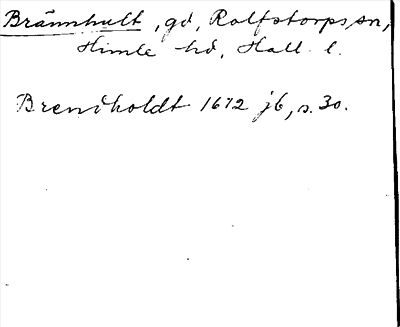 Brännhult, gd, Rolfstorps sn,
Himle hd, Hall. l.
Brendholdt 1672 jb, s. 30.